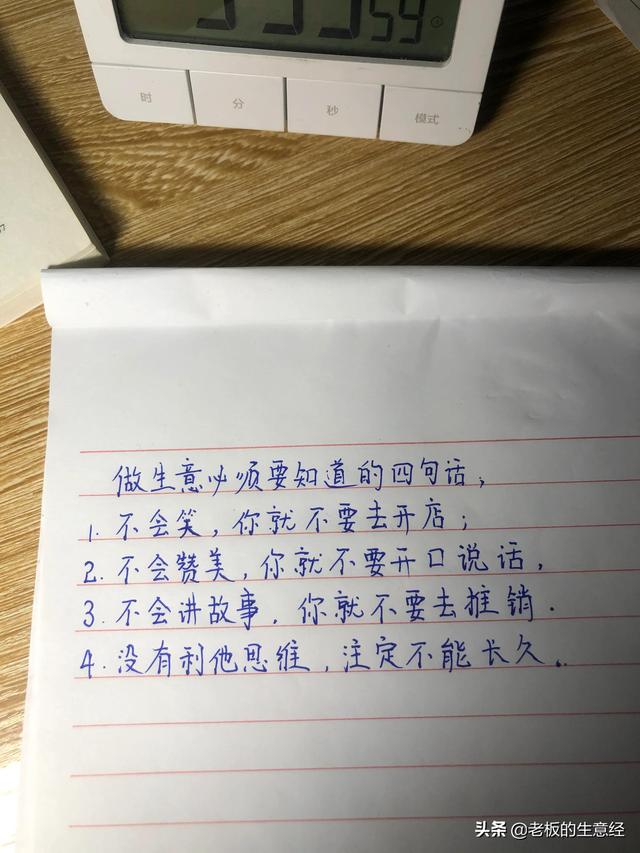 59
时 分 秒 模式
做生意必须要知道的四句话,
1. 不会笑,你就不要去开店;
2. 不会赞美,你就不要开口说话,
3. 不会讲故事,你就不要去推销.
4. 没有利他思维,注定不能长久。
头条 @老板的生意经